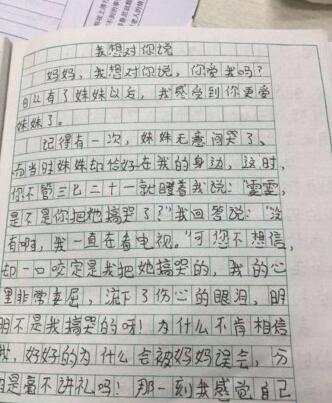 我想对你说
妈妈，我想对你说，你爱我吗？
自从有了妹妹以后，我感受到你更爱
妹妹了。
记得有一次，妹妹无意间哭了、
而当时妹妹却恰好在我的身边，这时，
你不管三七二十一就瞪着我说：“雲雲，
是不是你把她搞哭了？”我回答说：“没
有啊，我一直在看电视。”可您不想信，
却一口咬定是我把她搞哭的，我的心
里非常委屈，流下了伤心的眼泪，明
明不是我搞哭的呀！为什么不肯相信
我，好好的为什么会被妈妈误会，分
明是毫不讲礼吗！那一刻我感觉自己